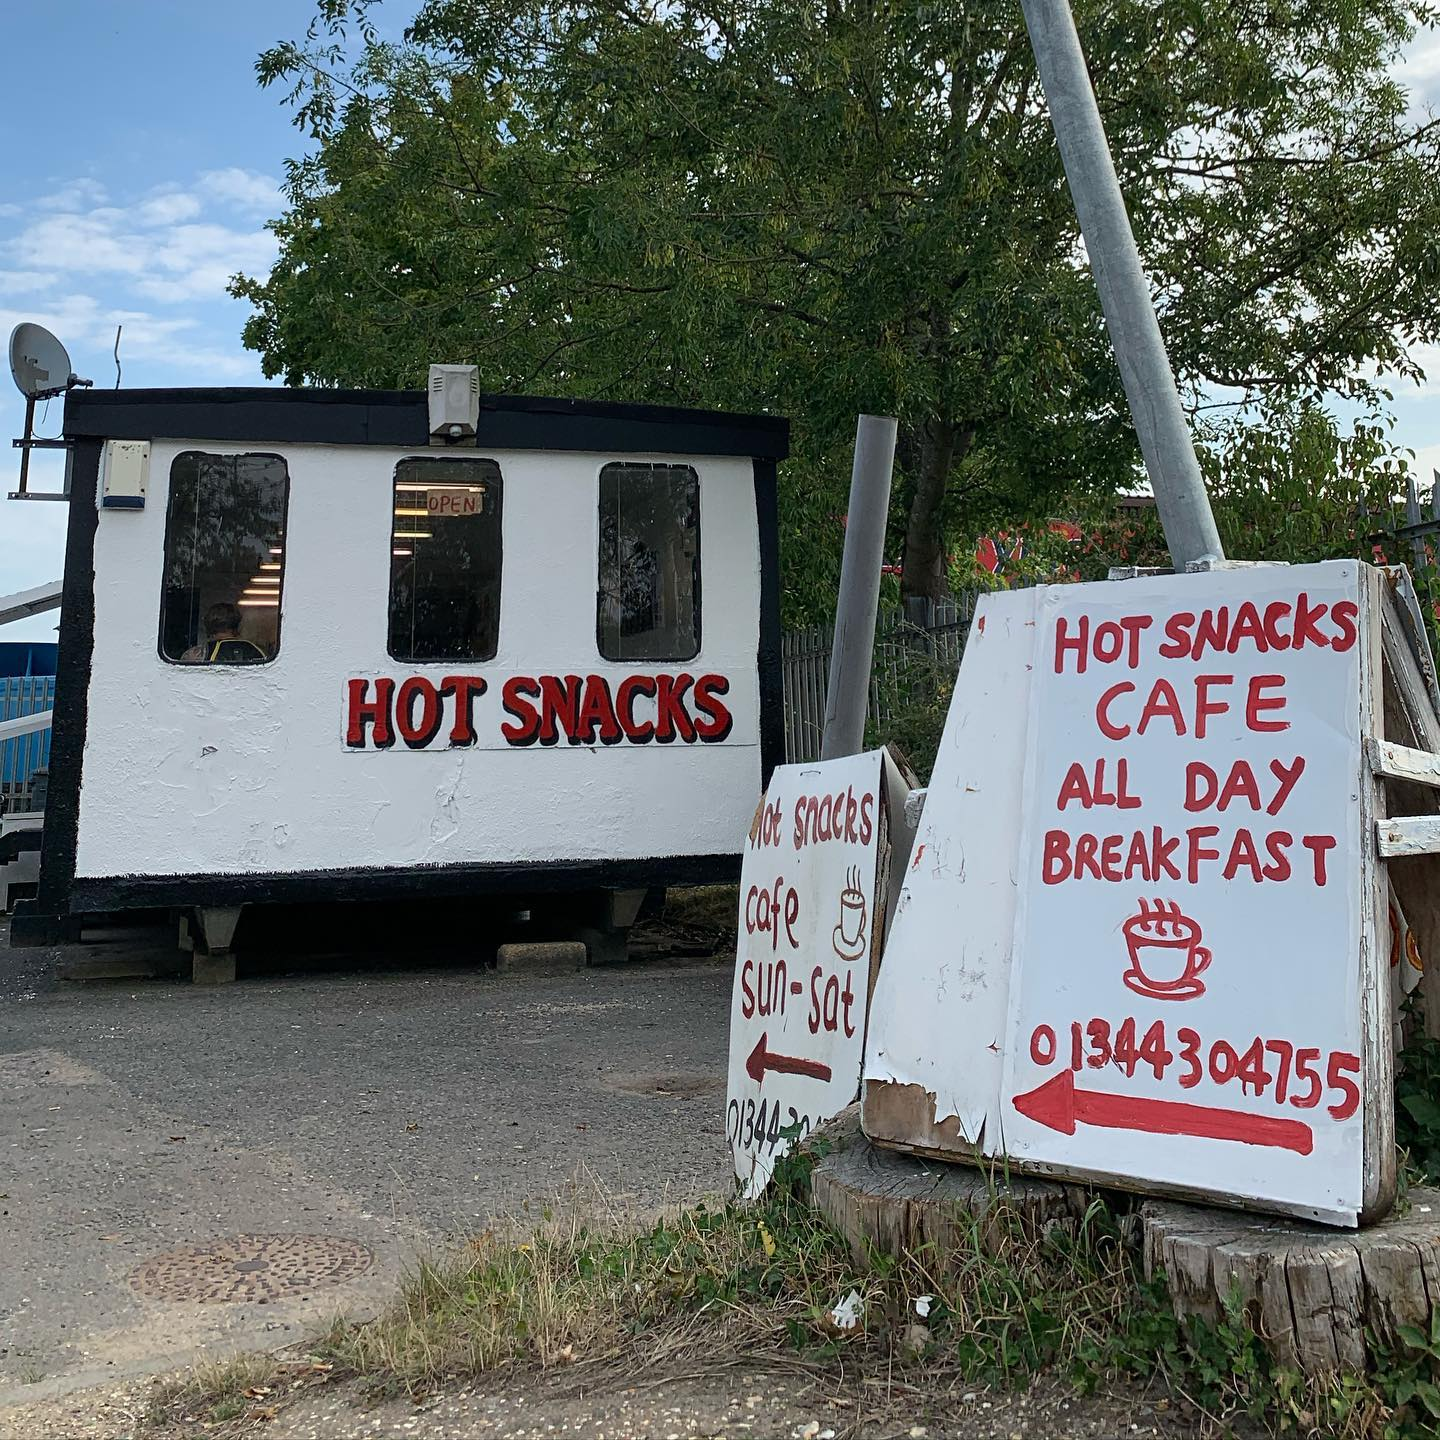 OPEN
HOT SNACKS
Hot snacks
cafe
sun-sat
HOT SNACKS
CAFE
ALL DAY
BREAKFAST
01344304755